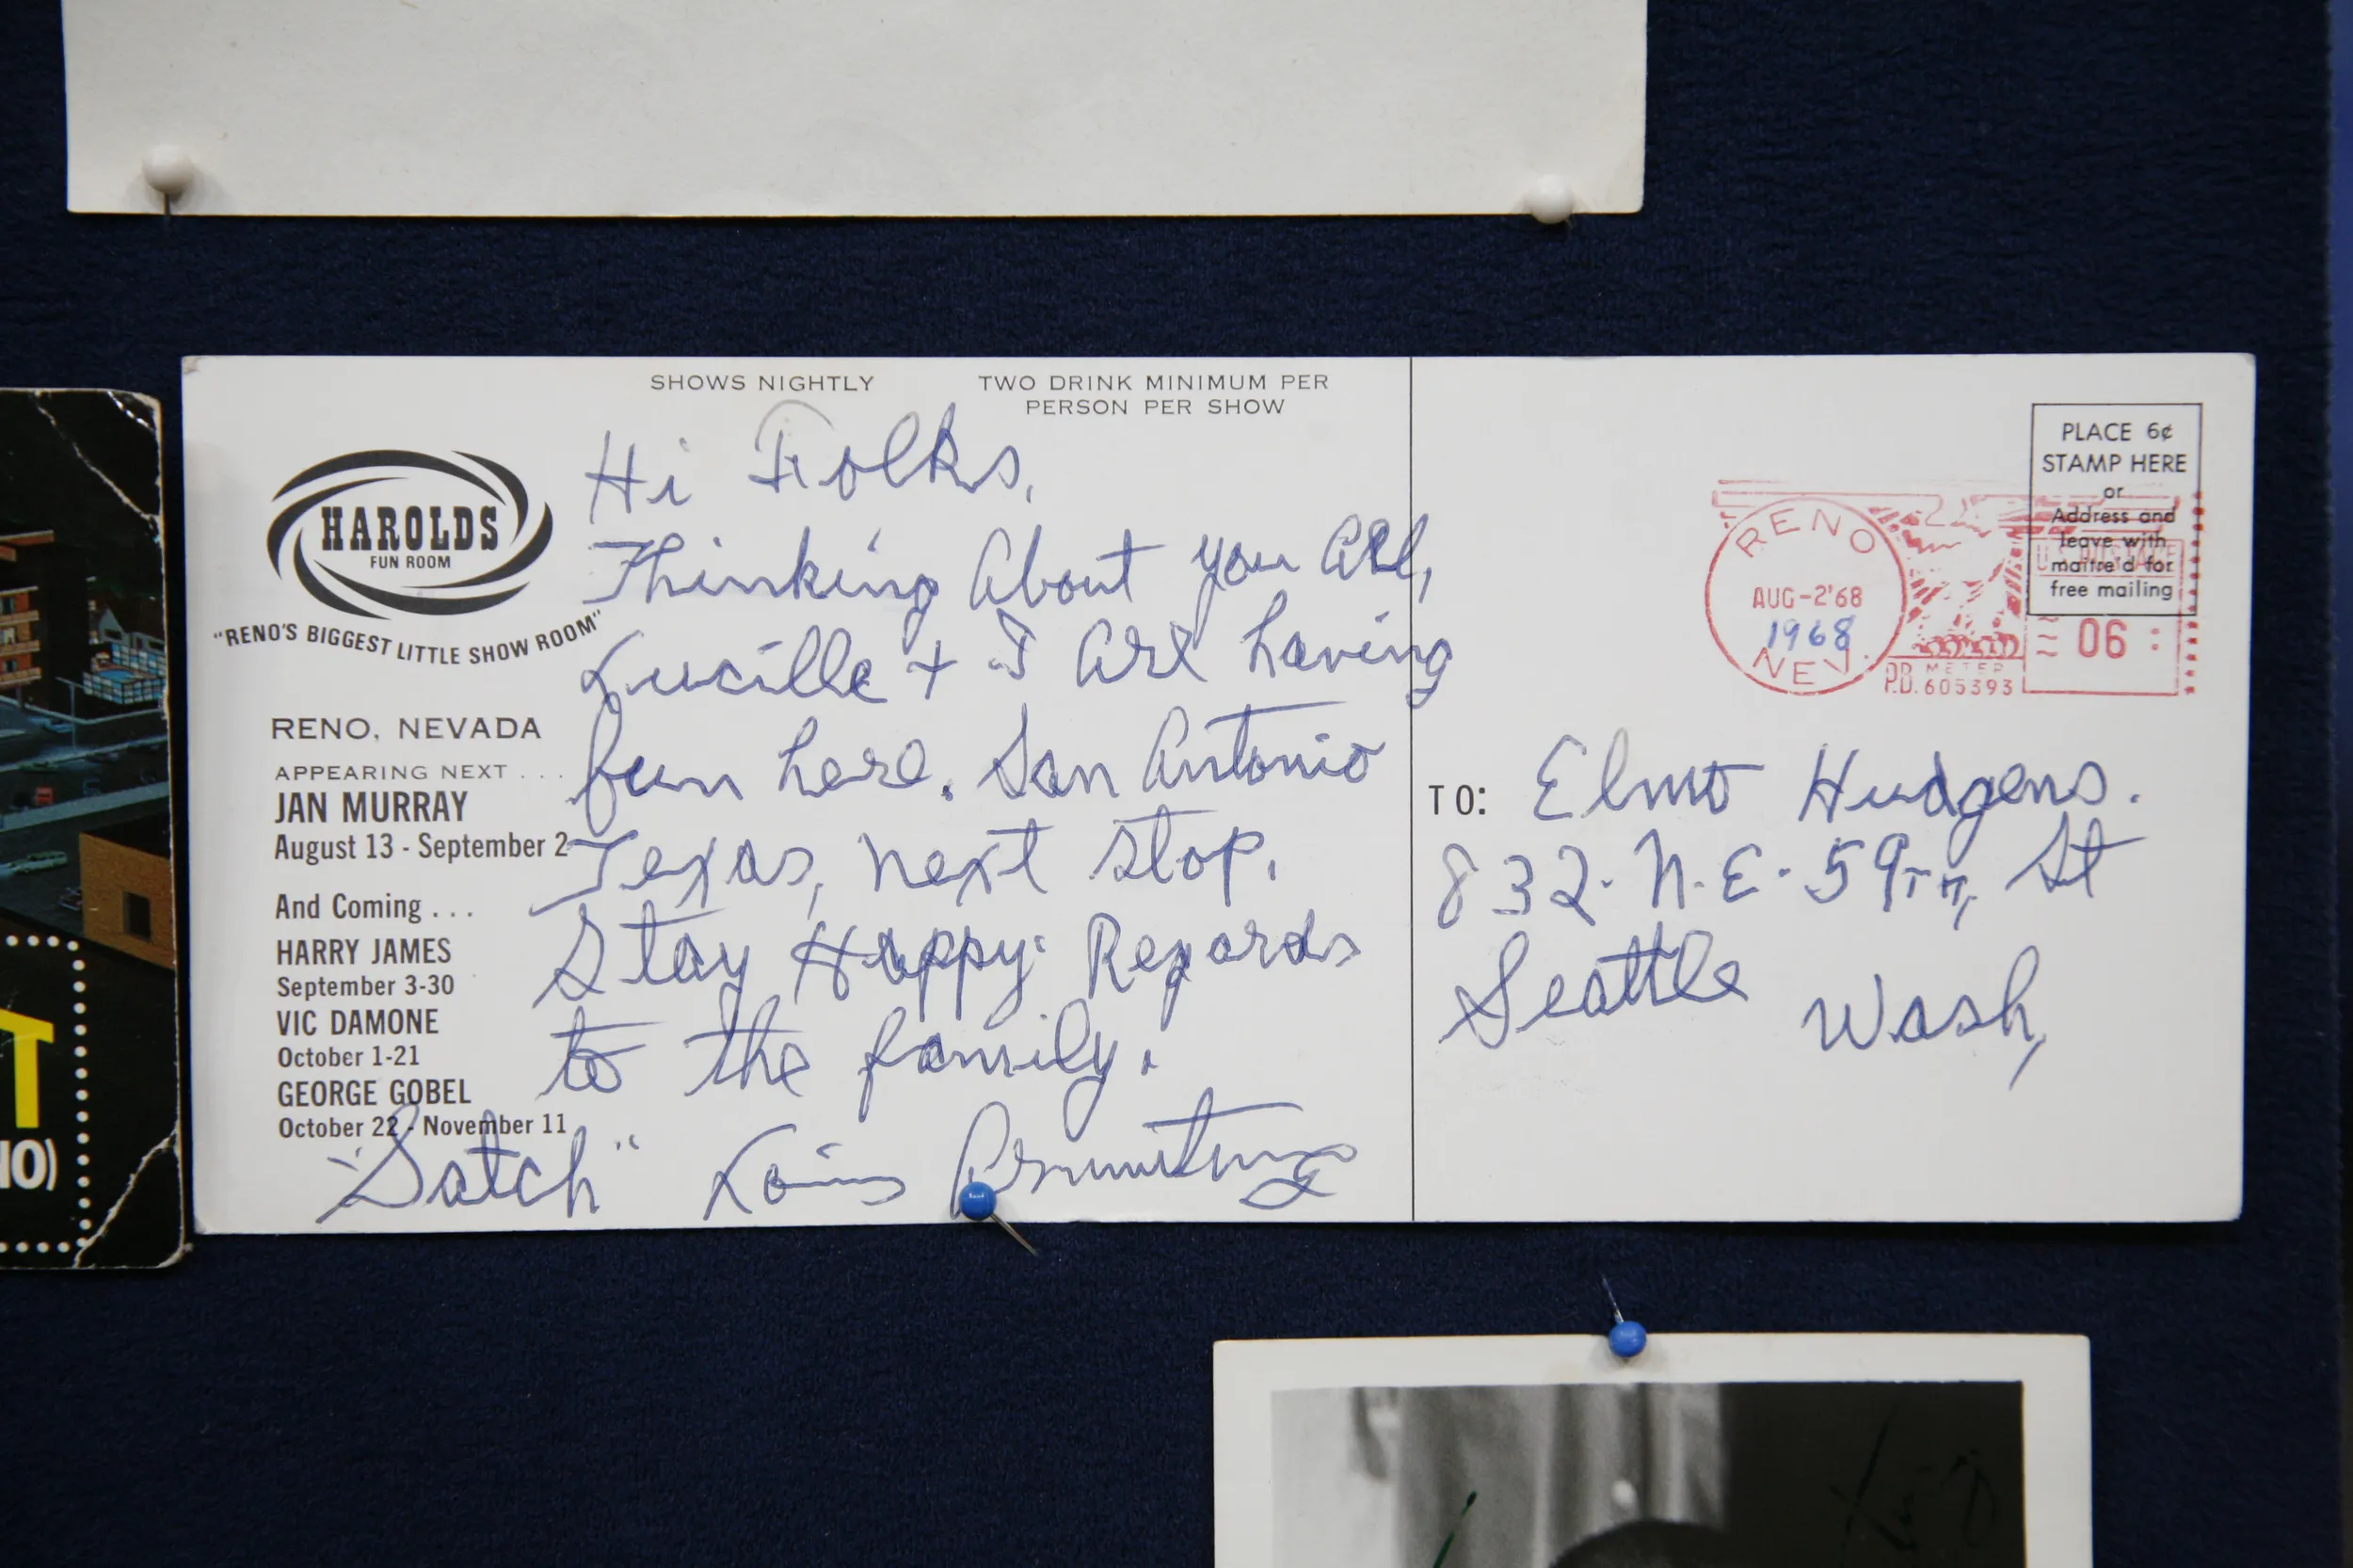 SHOWS NIGHTLY
TWO DRINK MINIMUM PER
PERSON PER SHOW
HAROLDS
FUN ROOM
"RENO'S BIGGEST LITTLE SHOW ROOM"
RENO, NEVADA
APPEARING NEXT . . .
JAN MURRAY
August 13 - September 2
And Coming . . .
HARRY JAMES
September 3-30
VIC DAMONE
October 1-21
GEORGE GOBEL
October 22 - November 11
Hi Folks,
Thinking About you All,
Lucille + I Are having
fun here. San Antonio
Texas, next stop.
Stay Happy. Regards
to the family.
"Satch" Louis Armstrong
PLACE 6¢
STAMP HERE
or
Address and
leave with
maitre'd for
free mailing
RENO
AUG-2'68
1968
NEV.
U.S. POSTAGE
06
P.B. METER
605393
TO: Elmo Hudgens.
832. N. E. 59TH, St
Seattle Wash,
T
NO)